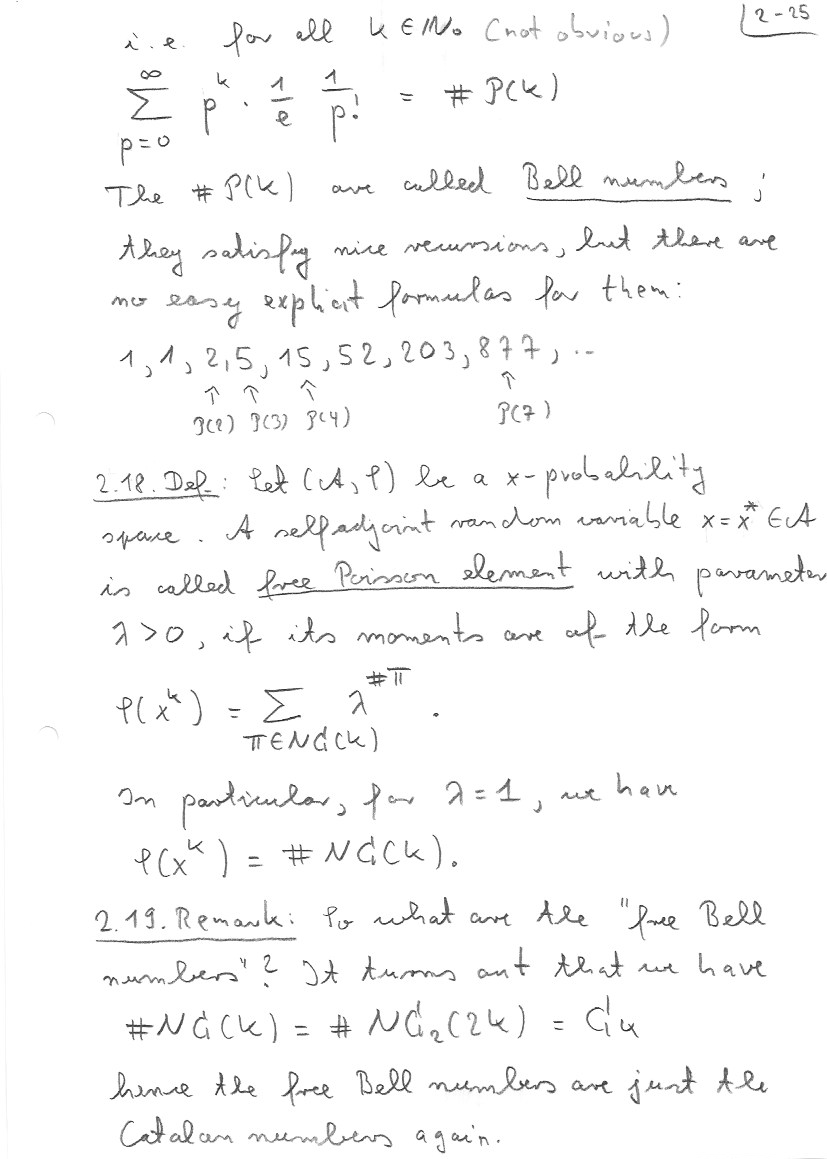 2-25
i.e. for all k ∈ ℕ₀ (not obvious)
∑_{p=0}^{∞} p^k · 1/e 1/p! = # P(k)
The # P(k) are called Bell numbers ;
they satisfy nice recursions, but there are
no easy explicit formulas for them:
1, 1, 2, 5, 15, 52, 203, 877, ...
↑ ↑ ↑ ↑
P(2) P(3) P(4) P(7)
2.18. Def.: Let (A, φ) be a *-probability
space. A selfadjoint random variable x = x* ∈ A
is called free Poisson element with parameter
λ > 0, if its moments are of the form
φ(x^k) = ∑_{π ∈ NC(k)} λ^{#π} .
In particular, for λ = 1, we have
φ(x^k) = # NC(k).
2.19. Remark: So what are the "free Bell
numbers"? It turns out that we have
# NC(k) = # NC₂(2k) = C_k
hence the free Bell numbers are just the
Catalan numbers again.